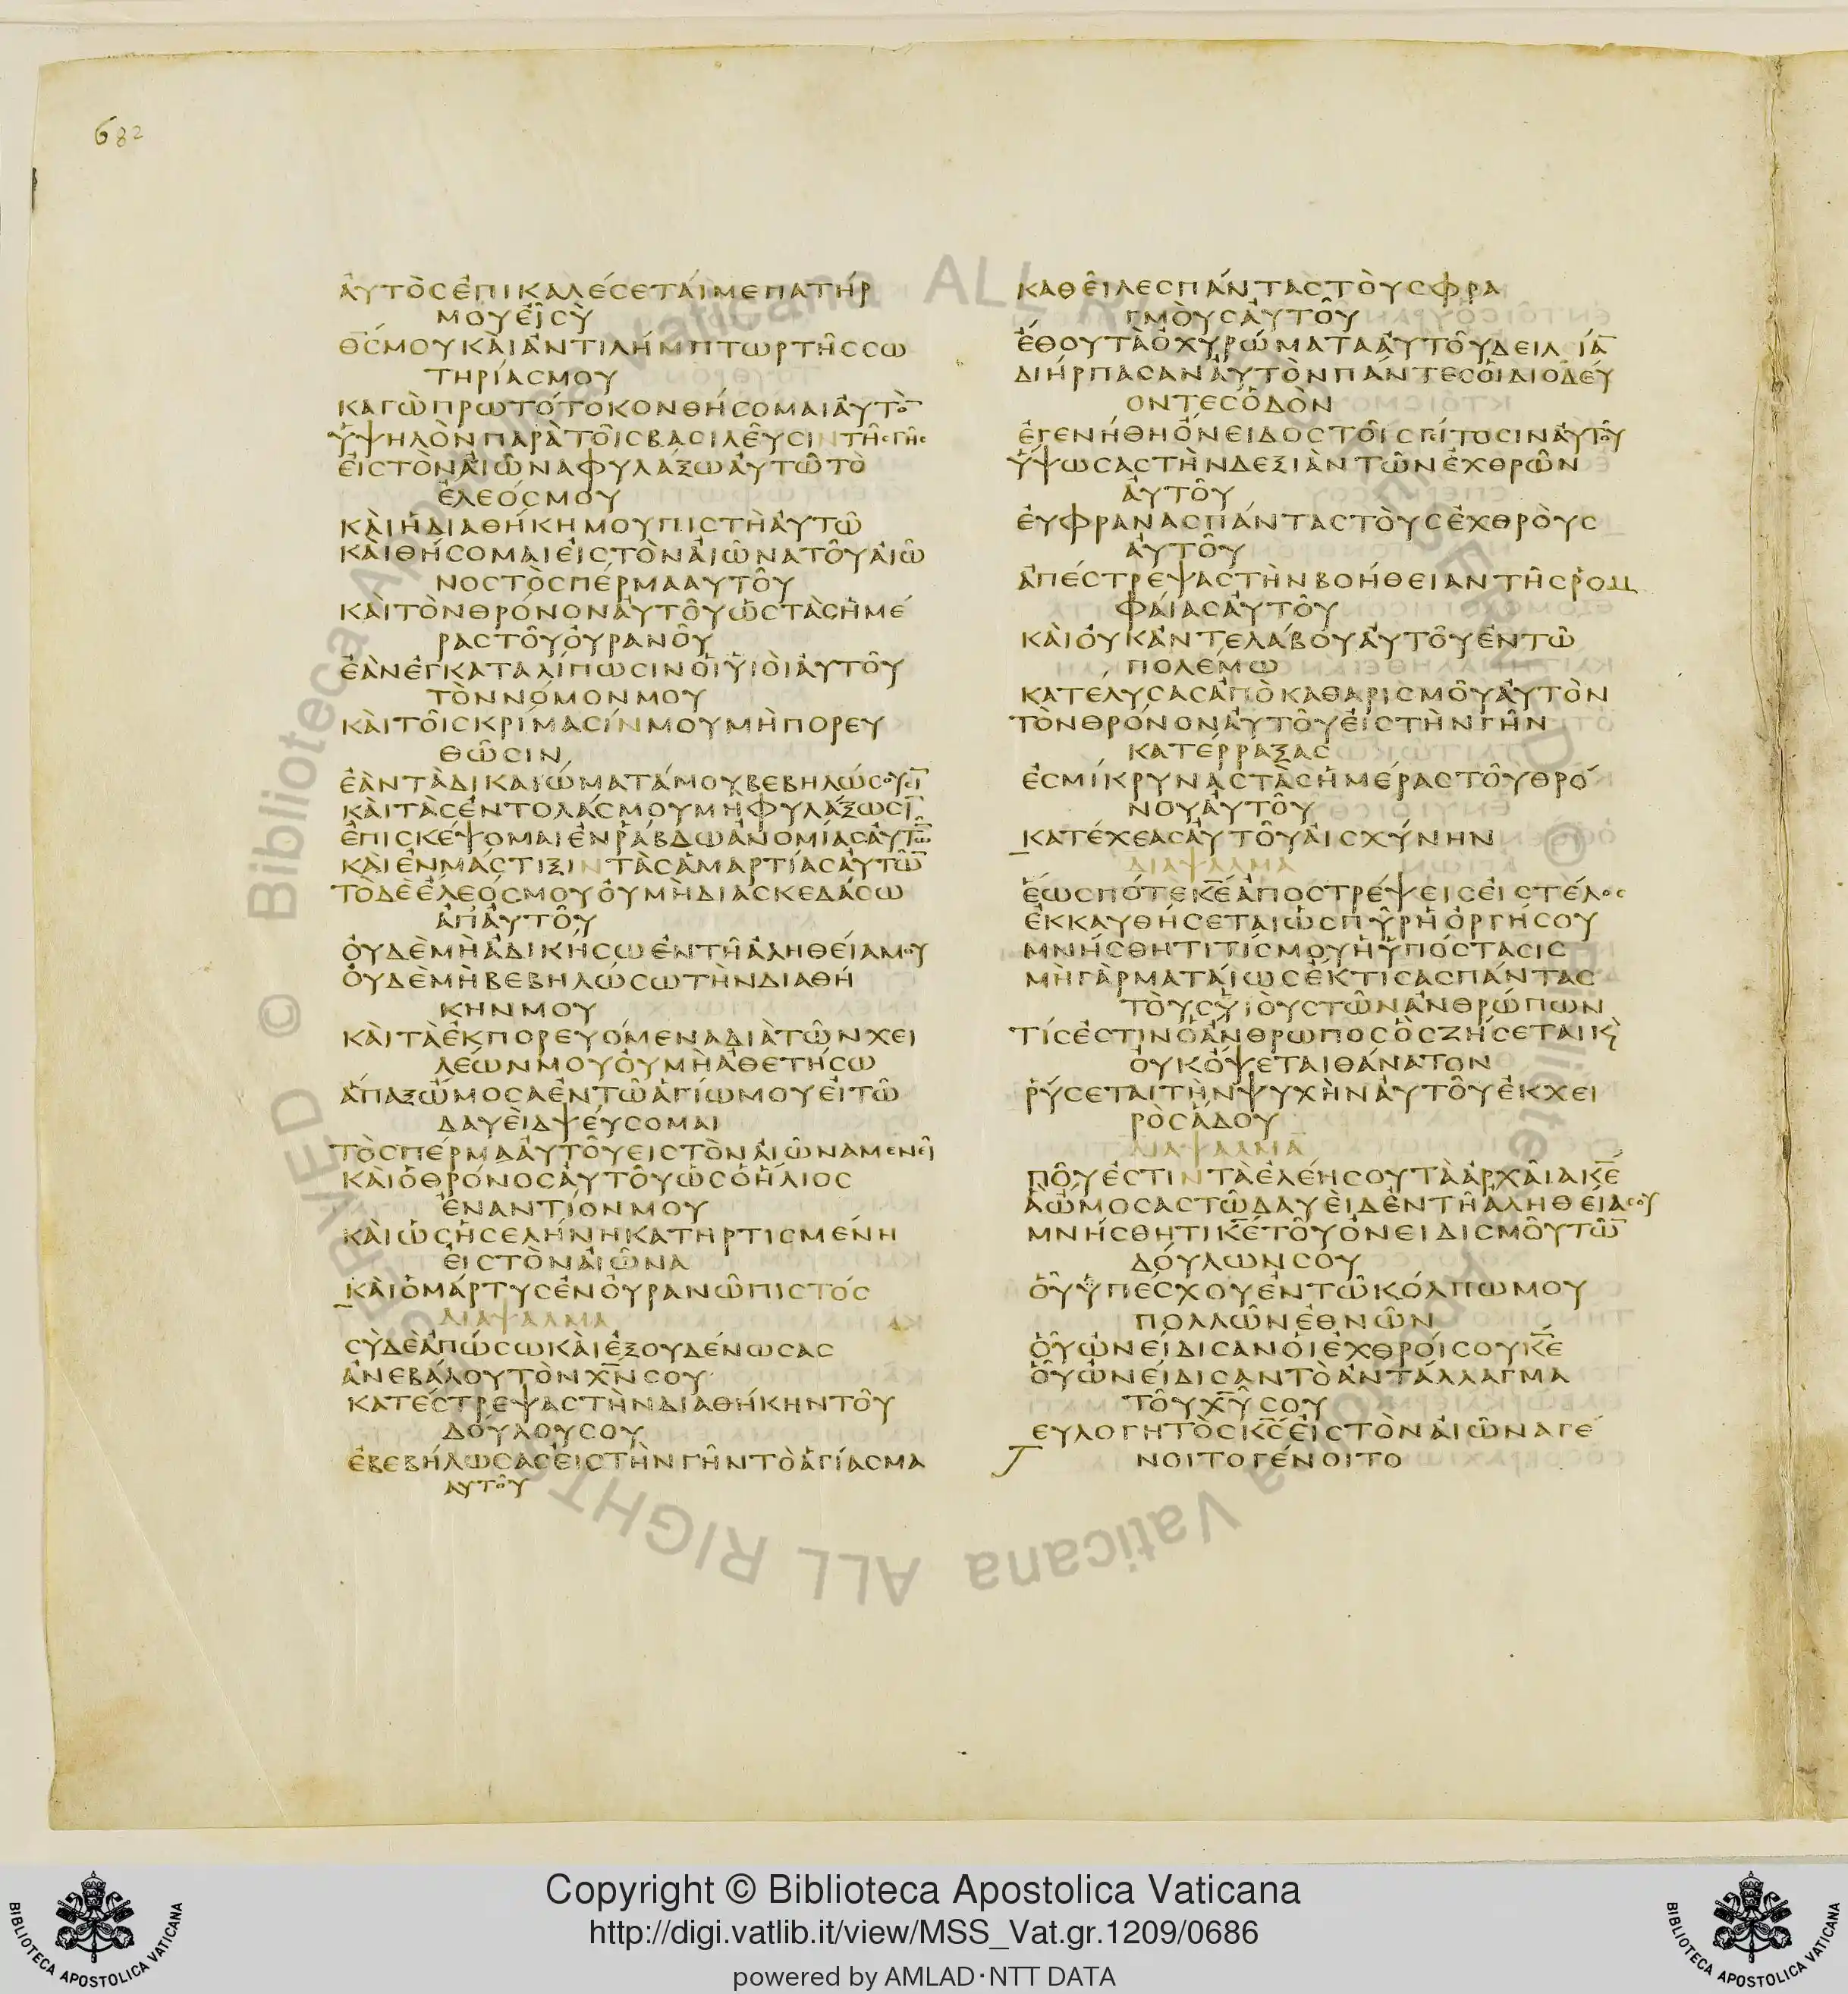 682
ἀυτὸσἐπικαλέσεταίμεπατήρ
μουεἶσὺ
θ̅σ̅μουκὰιἀντιλήμπτωρτῆσσω
τηρίασμου
καγὼπρωτότοκονθήσομαιἀυτὸ̅
ὑψηλὸνπαρὰτοῖσβασιλεῦσιντῆσγῆσ
εἰστὸναἰῶναφυλάξωἀυτῶτὸ
ἔλεόσμου
κὰιἡδιαθήκημουπιστὴἀυτῶ
κὰιθήσομαιεἰστὸναἰῶνατοῦαἰῶ
νοστὸσπέρμααυτοῦ
κὰιτὸνθρόνονἀυτοῦὡστὰσἡμέ
ραστοῦὀυρανοῦ
ἐὰνἐγκαταλίπωσινοἱὑιὸιἀυτοῦ
τὸννόμονμου
κὰιτοῖσκρίμασίνμουμὴπορευ
θῶσιν
ἐὰντὰδικαιώματάμουβεβηλώσουσι̅
κὰιτὰσἐντολάσμουμηφυλάξωσι̅
ἐπισκέψομαιἐνῥάβδωἀνομίασἀυτῶ̅
κὰιἐνμάστιξιντὰσἁμαρτίασἀυτῶ̅
τὸδεἐλεόσμουὀυμὴδιασκεδάσω
ἀπἀυτοῦ
ὀυδὲμὴἀδικήσωἐντῆἀληθείαμου
ὀυδὲμὴβεβηλώσωτὴνδιαθή
κηνμου
κὰιτὰἐκπορευόμεναδιὰτῶνχει
λέωνμουὀυμὴἀθετήσω
ἅπαξὤμοσαἐντῶἁγίωμουεἰτῶ
δαυὲιδψεύσομαι
τὸσπέρμαἀυτοῦειστὸναἰῶναμενεῖ
κὰιὁθρόνοσἀυτοῦὡσὁἥλιοσ
ἐναντίονμου
κὰιὡσἡσελήνηκατηρτισμένη
εἰστὸναἰῶνα
κὰιὁμάρτυσἐνὀυρανῶπιστόσ
διαψαλμα
σὺδὲἀπώσωκὰιἐξουδένωσασ
ἀνεβάλουτὸνχ̅ν̅σου
κατέστρεψαστὴνδιαθήκηντοῦ
δούλουσου
ἐβεβήλωσασεἰστὴνγῆντὸἁγίασμα
αυτοῦ
καθεῖλεσπάνταστὸυσφρα
γμὸυσἀυτοῦ
ἔθουτὰὀχυρώματαἀυτοῦδειλίᾱ
διήρπασανἀυτὸνπάντεσὁιδιοδεύ
οντεσὁδὸν
ἐγενήθηὄνειδοστοῖσγείτοσινἀυτοῦ
ὕψωσαστὴνδεξιὰντῶνἐχθρῶν
ἀυτοῦ
ἐυφρανασπάνταστὸυσἐχθρὸυσ
ἀυτοῦ
ἀπέστρεψαστὴνβοήθειαντῆσῥομ
φάιασἀυτοῦ
κὰιὀυκἀντελάβουἀυτοῦἐντῶ
πολέμω
κατέλυσασἀπὸκαθαρισμοῦἀυτὸν
τὸνθρόνονἀυτοῦεἰστὴνγῆν
κατέρραξασ
ἐσμίκρυναστὰσἡμέραστοῦθρό
νουἀυτοῦ
κατέχεασἀυτοῦἀισχύνην
διαψαλμα
ἕωσπότεκ̅ε̅ἀποστρέψεισεἰστέλοσ
ἐκκαυθήσεταιὡσπῦρἡὀργήσου
μνήσθητιτίσμουἡὑπόστασισ
μὴγὰρματάιωσἔκτισασπάντασ
τὸυσὑιὸυστῶνἀνθρώπων
τίσἐστινὁἄνθρωποσὃσζήσεταικὶ
ὀυκὄψεταιθάνατον
ῥύσεταιτὴνψυχὴνἀυτοῦἐκχει
ρὸσἅδου
διαψαλμα
ποῦἐστιντὰἐλέησουτὰἀρχᾶιακ̅ε̅
ἃὤμοσαστῶδαυὲιδἐντῆἀληθείασου
μνήσθητικ̅ε̅τοῦὀνειδισμοῦτῶ̅
δόυλωνσου
ὃῦὑπέσχουἐντῶκόλπωμου
πολλῶνἐθνῶν
ὃῦὠνείδισανὁιἐχθρόισουκ̅ε̅
ὃῦὠνείδισαντὸἀντάλλαγμα
τοῦχ̅υ̅σου
ευλογητὸσκ̅σ̅εἰστὸναἰῶναγέ
νοιτογένοιτο
Copyright © Biblioteca Apostolica Vaticana
http://digi.vatlib.it/view/MSS_Vat.gr.1209/0686
powered by AMLAD·NTT DATA
BIBLIOTECA APOSTOLICA VATICANA
BIBLIOTECA APOSTOLICA VATICANA